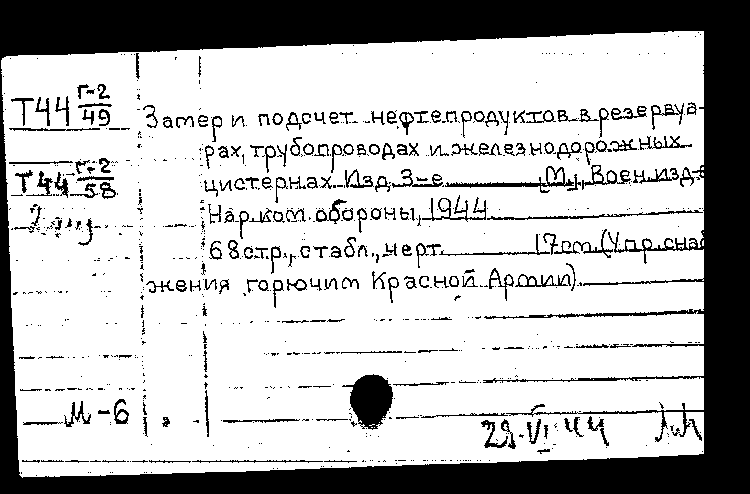 Т44 Г-2/49
Замер и подсчет нефтепродуктов в резервуа-
рах, трубопроводах и железнодорожных
Т44 Г-2/58
цистернах. Изд. 3-е М., Воен. изд-
Нар. ком. обороны, 1944
68 стр., с табл., черт. 17 cm. (Упр. снаб
жения горючим Красной Армии).
М-6
29.VI.44